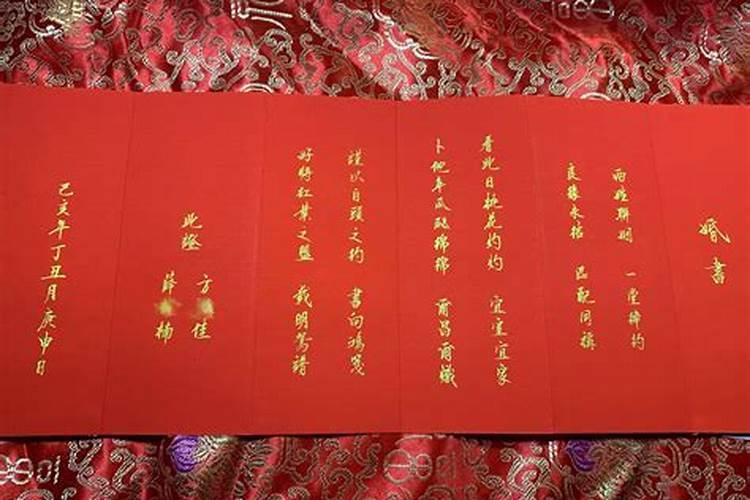 婚書
两姓聯姻 一堂締约
良缘永结 匹配同稱
看此日桃花灼灼 宜室宜家
卜他年瓜瓞绵绵 爾昌爾熾
谨以白頭之约 書向鴻箋
好將紅葉之盟 载明鸳譜
此證
方 佳
薛 楠
己亥年丁丑月庚申日